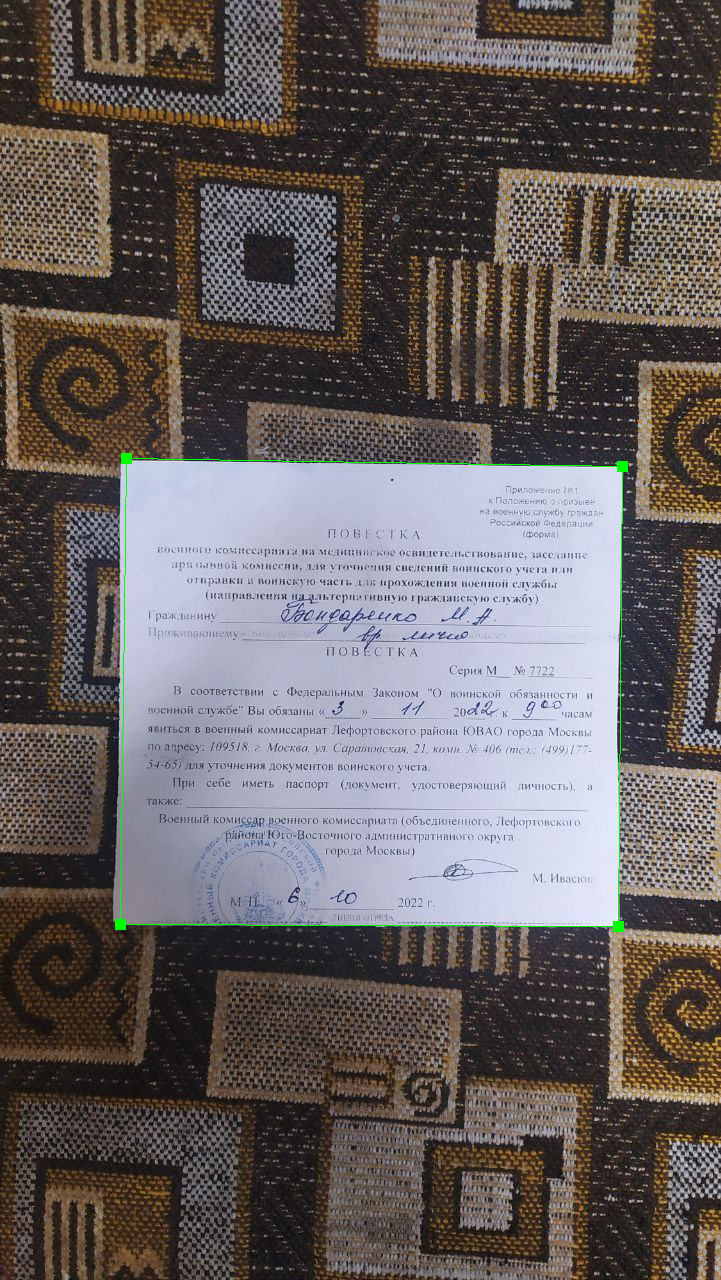 Приложение №1
к Положению о призыве
на военную службу граждан
Российской Федерации
(форма)
ПОВЕСТКА
военного комиссариата на медицинское освидетельствование, заседание
призывной комиссии, для уточнения сведений воинского учета или
отправки в воинскую часть для прохождения военной службы
(направления на альтернативную гражданскую службу)
Гражданину Бондаренко М. А.
Проживающему вр. лично
ПОВЕСТКА
Серия М № 7722
В соответствии с Федеральным Законом "О воинской обязанности и
военной службе" Вы обязаны «3» 11 2022 к 9 00 часам
явиться в военный комиссариат Лефортовского района ЮВАО города Москвы
по адресу: 109518, г. Москва, ул. Саратовская, 21, комн. № 406 (тел.: (499)177-
54-65) для уточнения документов воинского учета.
При себе иметь паспорт (документ, удостоверяющий личность), а
также:
Военный комиссар военного комиссариата (объединенного, Лефортовского
района Юго-Восточного административного округа
города Москвы)
М. Ивасюк
М.П. «6» 10 2022 г.
ЛИНИЯ ОТРЕЗА
КОМИССАРИАТ ГОРОДА